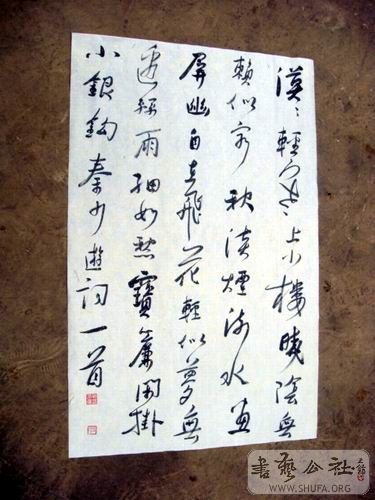 漠〻輕寒上小樓曉陰無
賴似窮秋淡煙流水畫
屏幽自在飛花輕似夢無
邊絲雨細如愁寶簾閑掛
小銀鉤秦少遊詞一首
書藝公社
WWW.SHUFA.ORG